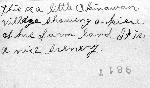 This is a little Okinawan
village showing a piece
of the farm land. It is
a nice scenery.
1186